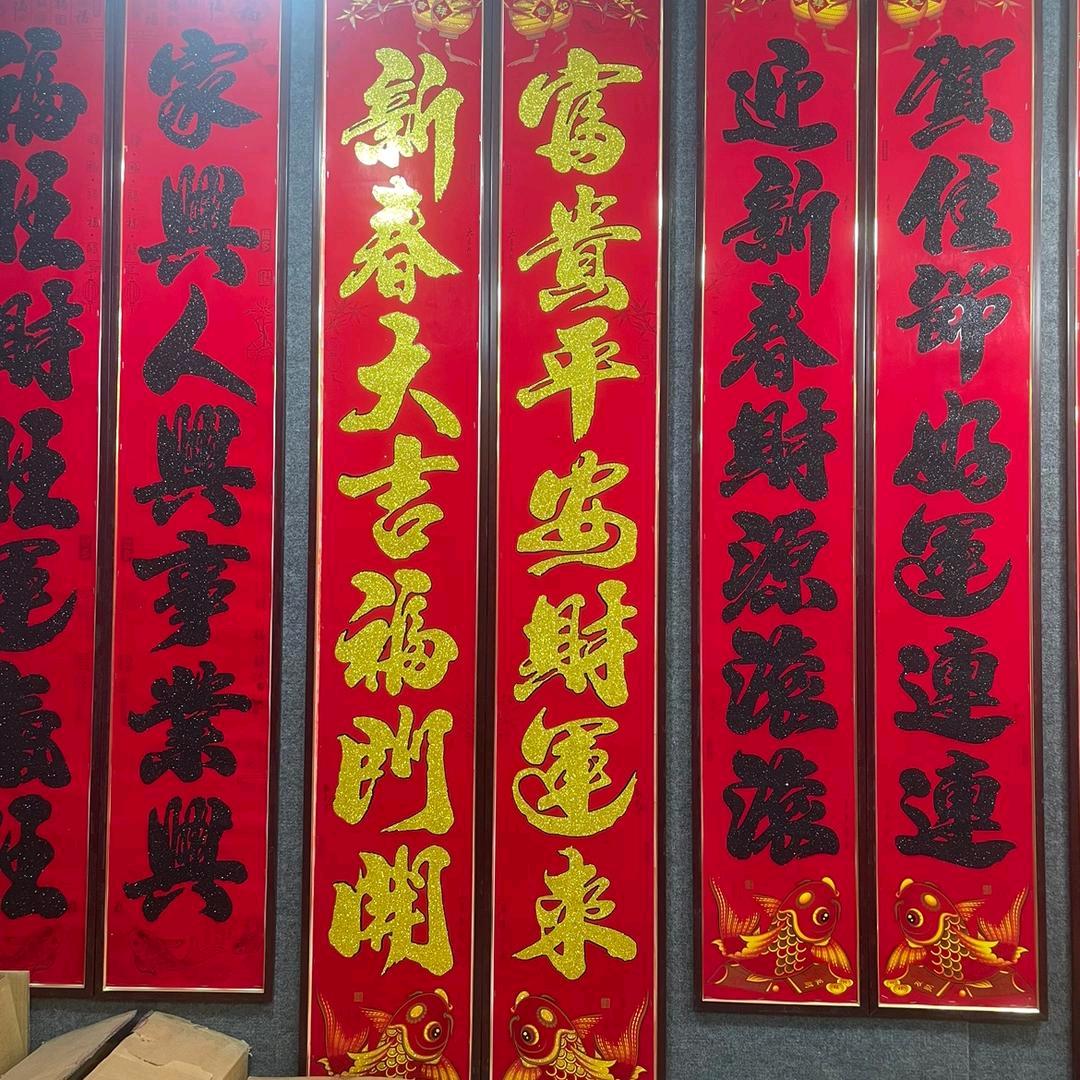 賀佳節好運連連
迎新春財源滾滾
富貴平安財運來
新春大吉福門開
家興人興事業興
福旺財旺運氣旺